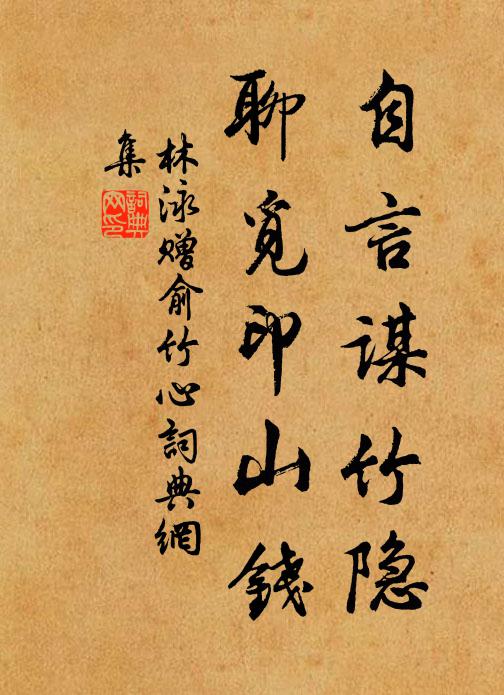 自言谋竹隐
聊觅印山錢
林泳赠俞竹心詞典網
集
詞典網印